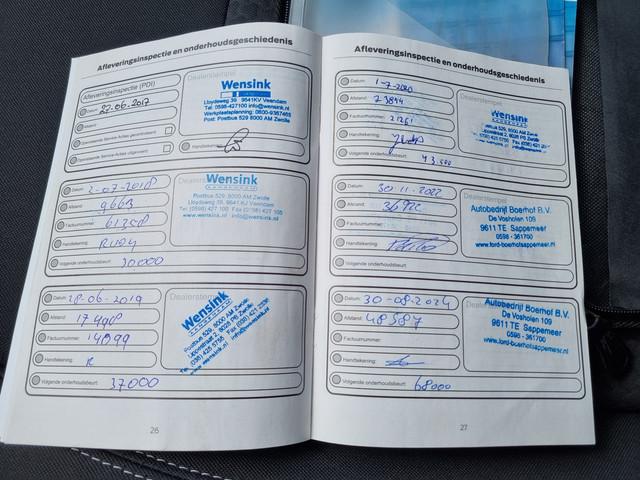 Afleveringsinspectie en onderhoudsgeschiedenis
Afleveringsinspectie (PDI)
Datum: 22.06.2017
Afstand:
Handtekening:
Dealerstempel
Wensink
Lloydsweg 39 9641KV Veendam
Tel: 0598-427100 info@wensink.nl
Werkplaatsplanning: 0800-9367465
Post: Postbus 529 8000 AM Zwolle
Datum: 2-07-2018
Afstand: 9663
Factuurnummer: 61308
Handtekening: Rudy
Volgende onderhoudsbeurt: 30000
Wensink
Postbus 529, 8000 AM Zwolle
Lloydsweg 39, 9641 KJ Veendam
Tel. (0598) 427 100 Fax (0598) 427 105
www.wensink.nl info@wensink.nl
Datum: 28-06-2019
Afstand: 17498
Factuurnummer: 14099
Handtekening: R
Volgende onderhoudsbeurt: 37000
Dealerstempel
Wensink
Postbus 529, 8000 AM Zwolle
www.wensink.nl info@wensink.nl
26
Afleveringsinspectie en onderhoudsgeschiedenis
Datum: 1-7-2020
Afstand: 23894
Factuurnummer: 21261
Handtekening:
Volgende onderhoudsbeurt: 43.500
Dealerstempel
Wensink
Datum: 30-11-2022
Afstand:
Factuurnummer:
Handtekening:
Volgende onderhoudsbeurt:
Autobedrijf Boerhof B.V.
De Vosholen 109
9611 TE Sappemeer
0598 - 361700
www.ford-boerhofsappemeer.nl
Datum: 30-08-2024
Afstand: 48587
Factuurnummer:
Handtekening:
Volgende onderhoudsbeurt: 68000
Dealerstempel
Autobedrijf Boerhof B.V.
De Vosholen 109
9611 TE Sappemeer
0598 - 361700
www.ford-boerhofsappemeer.nl
27